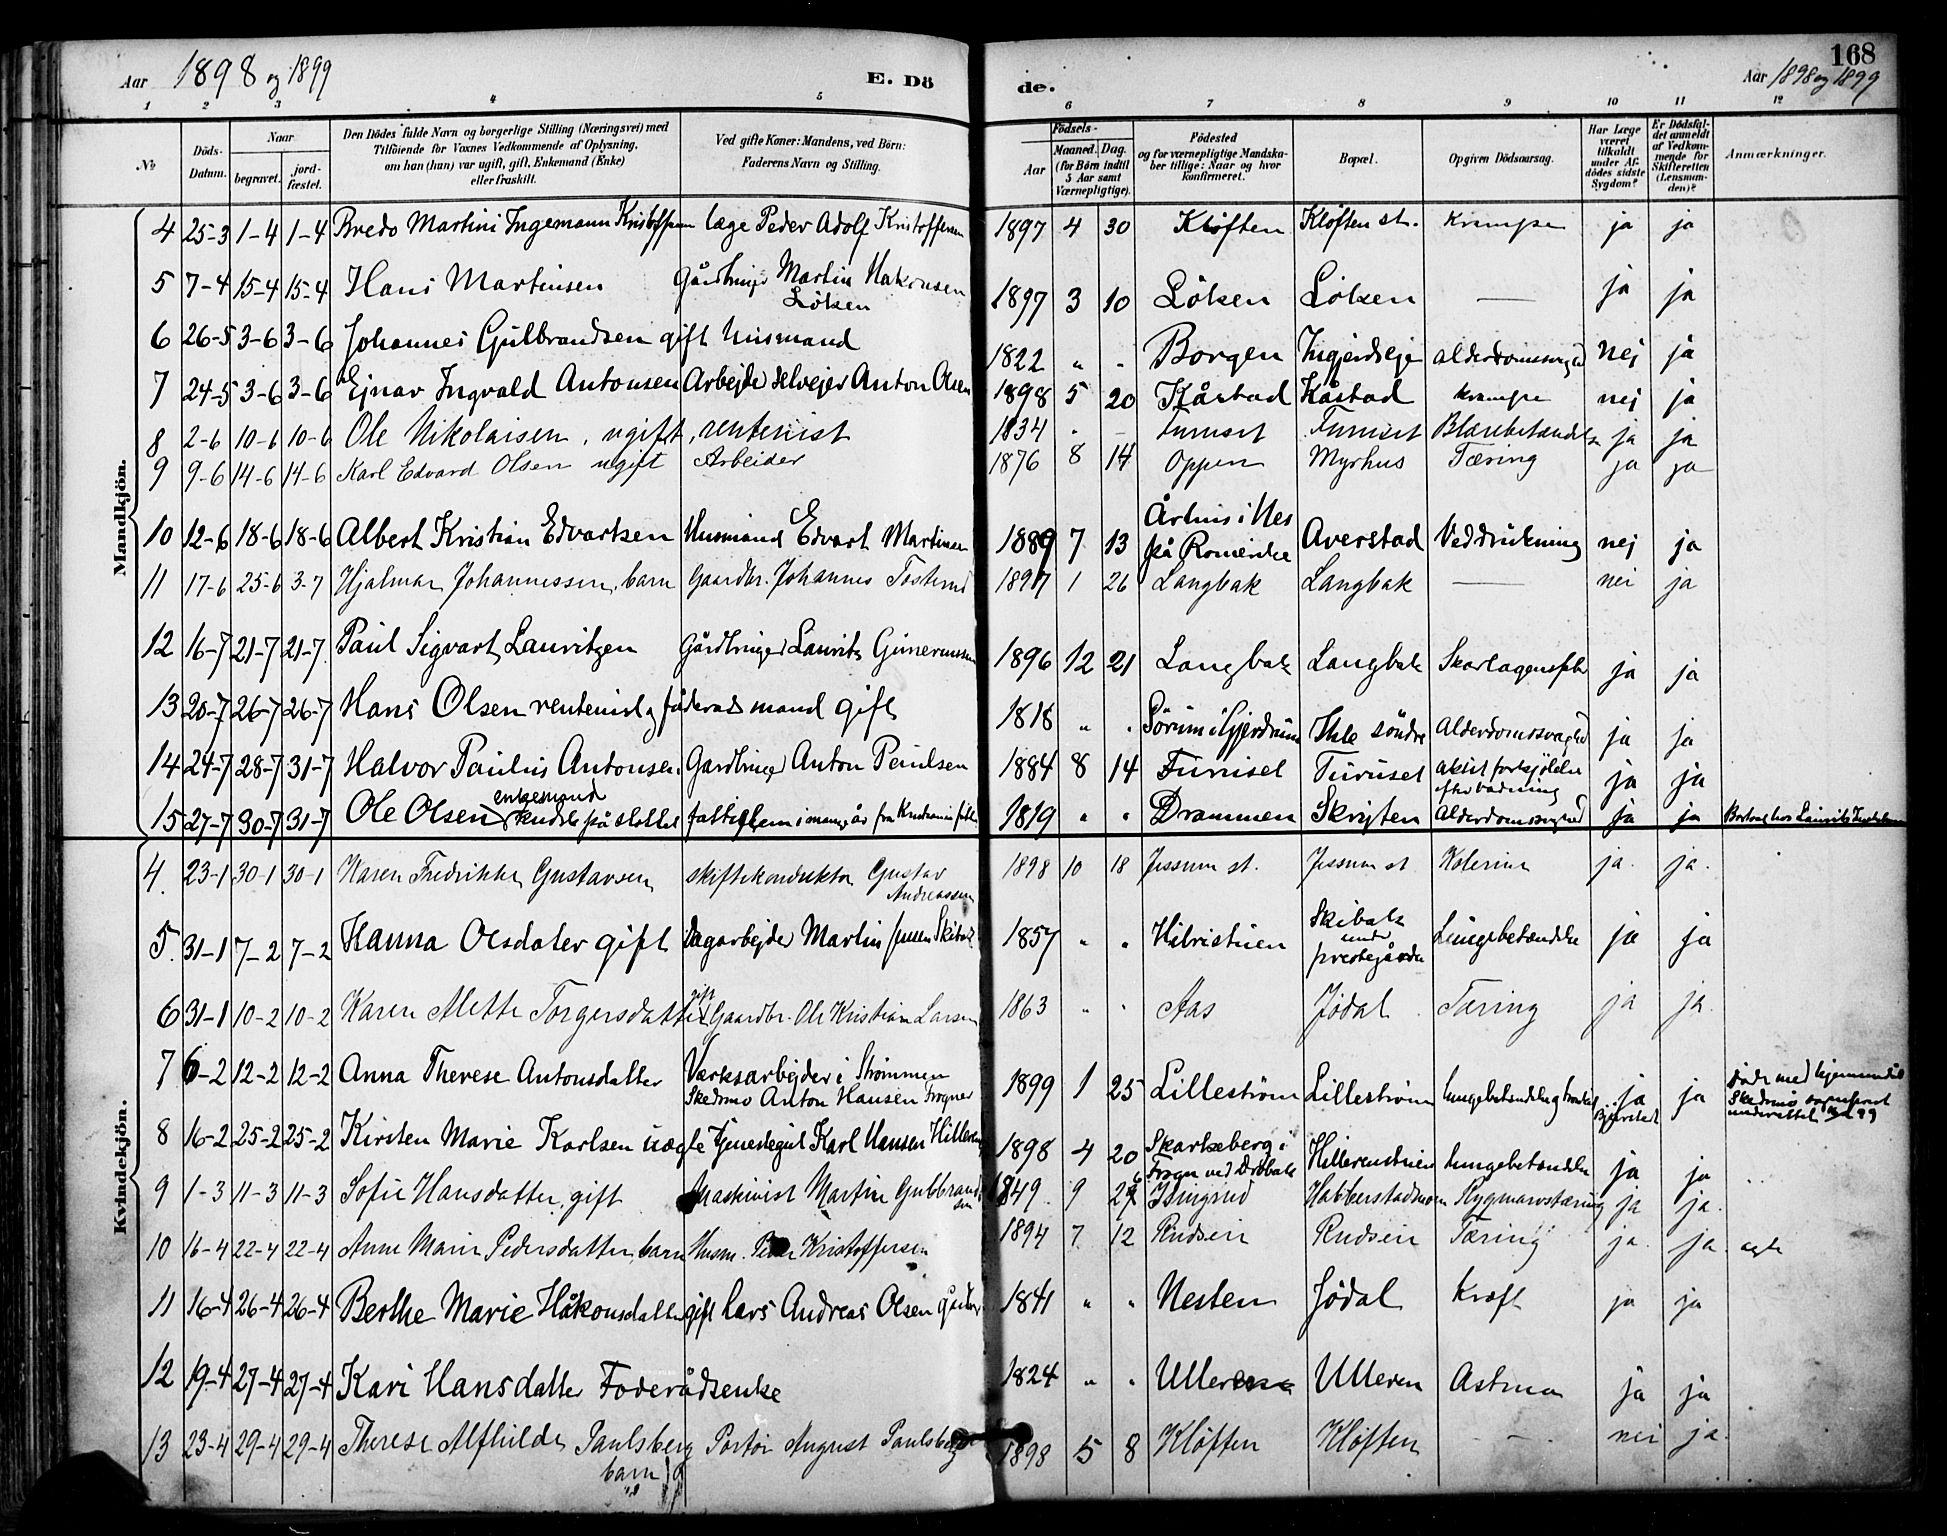 168
Aar 1898 og 1899 E. Dö de. Aar 1898 og 1899
1 2 3 4 5 6 7 8 9 10 11 12
No Döds-Datum. Naar begravet. jord-fæstet. Den Dödes fulde Navn og borgerlige Stilling (Næringsvei) med Tilföiende for Voxnes Vedkommende af Oplysning, om han (hun) var ugift, gift, Enkemand (Enke) eller fraskilt. Ved gifte Koner: Mandens, ved Börn: Faderens Navn og Stilling. Födsels- Aar Maaned. Dag. (for Börn indtil 5 Aar samt Værnepligtige). Födested og for værnepligtige Mandskaber tillige: Naar og hvor konfirmeret. Bopæl. Opgiven Dödsaarsag. Har Læge været tilkaldt under Afdödes sidste Sygdom? Er Dödsfaldet anmeldt af Vedkommende for Skifteretten (Lensmanden)? Anmærkninger.
Mandkjön.
4 25-3 1-4 1-4 Bredo Martini Ingemann Kristoffersen læge Peder Adolf Kristoffersen 1897 4 30 Kløften Kløften st. Krampe ja ja
5 7-4 15-4 15-4 Hans Martinsen Gårdbruger Martin Hakonsen Löken 1897 3 10 Löken Löken — ja ja
6 26-5 3-6 3-6 Johannes Gulbrandsen gift husmand 1822 " " Borgen Ingjerdseje alderdomssvaghed nej ja
7 24-5 3-6 3-6 Ejnar Ingvald Antonsen Arbejder selvejer Anton Olsen 1898 5 20 Kåstad Kåstad krampe nej ja
8 2-6 10-6 10-6 Ole Nikolaisen, ugift, rentenist 1834 " - Furuset Furuset Blærebetændelse ja ja
9 9-6 14-6 14-6 Karl Edvard Olsen ugift Arbeider 1876 8 14 Oppen Myrhus Tæring ja ja
10 12-6 18-6 18-6 Albert Kristian Edvartsen Husmand Edvart Martinsen 1889 7 13 Århus i Nes på Romerike Averstad Veddrukning nej ja
11 17-6 25-6 3-7 Hjalmar Johannessen, barn Gaardbr. Johannes 1897 1 26 Langbak Langbak — nei ja
12 16-7 21-7 21-7 Paul Sigvart Lauritzen Gårdbruger Laurits Gunerussen 1896 12 21 Langbak Langbak Skarlagensfeber ja ja
13 20-7 26-7 26-7 Hans Olsen rentenist og föderådsmand gift 1818 " " Sörum i Gjerdrum Ihle söndre Alderdomssvaghed ja ja
14 24-7 28-7 31-7 Halvor Paulus Antonsen Gardbruger Anton Paulsen 1884 8 14 Furuset Furuset akut forkjølelse efter badning ja ja
15 27-7 30-7 31-7 Ole Olsen enkemand på slottet fattiglem i mange år fra Kristiania 1819 " " Drammen Skrigten Alderdomssvaghed ja ja
Kvindekjön.
4. 23-1 30-1 30-1 Karen Fredrikke Gustavsen skiftekonduktør Gustav Andreassen 1898 10 18 Jessum st. Jessum st Kolerine ja. ja.
5. 31-1 7-2 7-2 Hanna Olsdater gift Dagarbejder Martin Jensen Skibak 1857 " " Hilvistuen Skibak under prestegården Lungebetændelse ja ja
6 31-1 10-2 10-2 Karen Mette Torgersdatter gift Gaardbr. Ole Kristian Larsen 1863 " " Aas Jødal Tæring ja ja.
7 6-2 12-2 12-2 Anna Therese Antonsdatter Værksarbejder i Strømmen Skedsmo Anton Hansen Frogner 1899 1 25 Lilleström Lilleström lungebetændelse ja ja
8 16-2 25-2 25-2 Kirsten Marie Karlsen uægte Tjenestegut Karl Hansen 1898 4 20 Skarkeberg i Frogn ved Dröbak Hillerenstuen Lungebetændelse ja ja
9 1-3 11-3 11-3 Sofie Hansdatter, gift Maskinist Martin Gulbrandsen 1849 9 Habberstadmoen Rygmarvstæring ja ja.
10 16-4 22-4 22-4 Anne Marie Pedersdatter, barn Husm. Peder Kristoffersen 1894 7 12 Rudsein Rudsein Tæring ja. ja ægte
11 16-4 26-4 26-4 Berthe Marie Håkonsdatter gift Lars Andreas Olsen 1841 " " Nesten Jødal Kræft ja ja
12 19-4 27-4 27-4 Kari Hansdatter Foderådsenke 1824 " " Ulleren Ulleren Astma ja ja
13 23-4 29-4 29-4 Therese Alfhilde Paulsberg barn Portør August Paulsberg 1898 5 8 Kløften Kløften — nei ja.